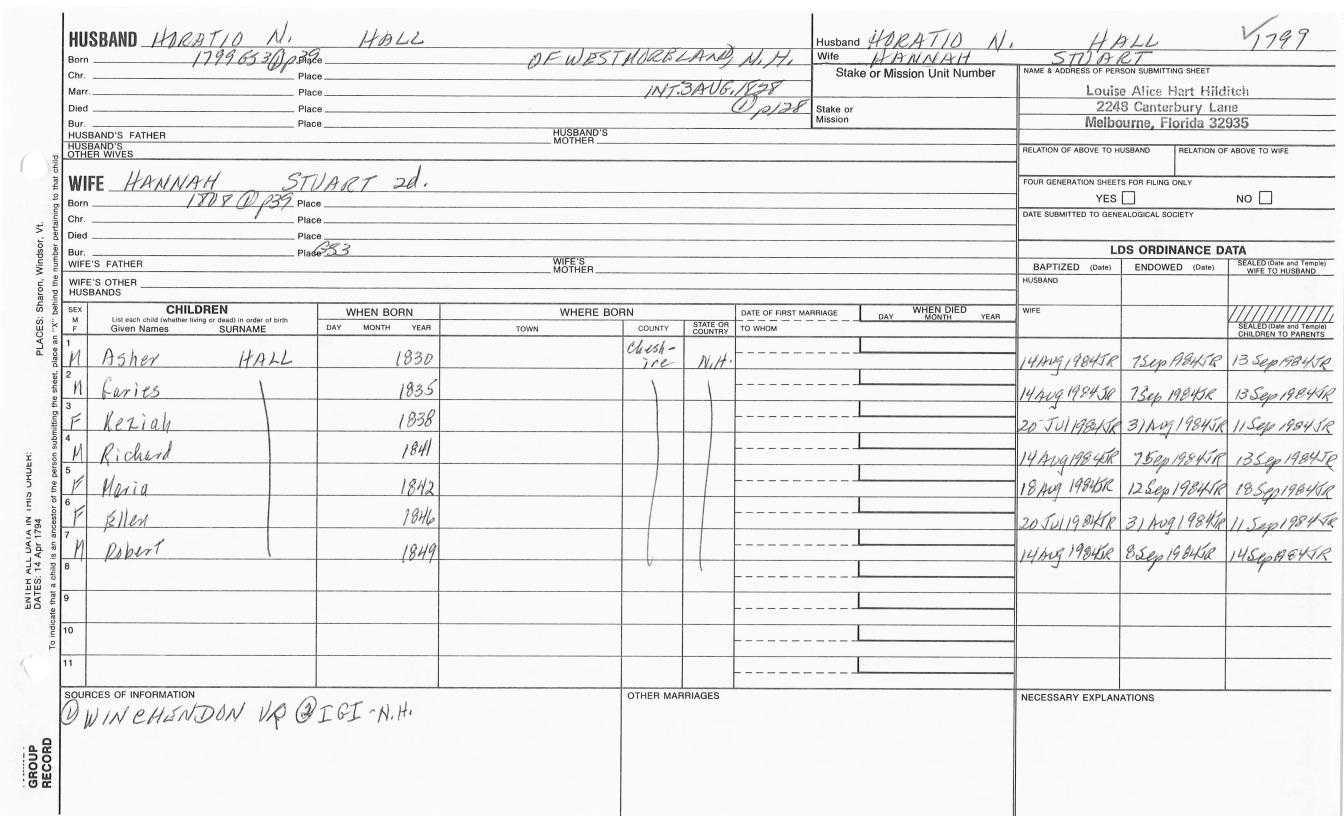 HUSBAND HORATIO N. HALL
Born 1799 GS3 ① p39 Place OF WESTMORELAND, N.H.
Chr. Place
Marr. Place INT. 3 AUG. 1828
Died Place ① p128
Bur. Place
HUSBAND'S FATHER HUSBAND'S MOTHER
HUSBAND'S OTHER WIVES
WIFE HANNAH STUART 2d.
Born 1808 ① p39 Place
Chr. Place
Died Place
Bur. Place GS3
WIFE'S FATHER WIFE'S MOTHER
WIFE'S OTHER HUSBANDS
Husband HORATIO N. HALL ✓1799
Wife HANNAH STUART
Stake or Mission Unit Number
Stake or Mission
NAME & ADDRESS OF PERSON SUBMITTING SHEET
Louise Alice Hart Hilditch
2248 Canterbury Lane
Melbourne, Florida 32935
RELATION OF ABOVE TO HUSBAND RELATION OF ABOVE TO WIFE
FOUR GENERATION SHEETS FOR FILING ONLY
YES NO
DATE SUBMITTED TO GENEALOGICAL SOCIETY
LDS ORDINANCE DATA
BAPTIZED (Date) ENDOWED (Date) SEALED (Date and Temple) WIFE TO HUSBAND
HUSBAND
WIFE
SEALED (Date and Temple) CHILDREN TO PARENTS
SEX M F CHILDREN WHEN BORN WHERE BORN DATE OF FIRST MARRIAGE WHEN DIED
List each child (whether living or dead) in order of birth
Given Names SURNAME DAY MONTH YEAR TOWN COUNTY STATE OR COUNTRY TO WHOM DAY MONTH YEAR
1 M Asher HALL 1830 Chesh-ire N.H. 14 Aug 1984JR 7 Sep 1984JR 13 Sep 1984JR
2 M Caries 1835 14 Aug 1984JR 7 Sep 1984JR 13 Sep 1984JR
3 F Keziah 1838 20 Jul 1984JR 31 Aug 1984JR 11 Sep 1984JR
4 M Richard 1841 14 Aug 1984JR 7 Sep 1984JR 13 Sep 1984JR
5 F Maria 1842 18 Aug 1984JR 12 Sep 1984JR 18 Sep 1984JR
6 F Ellen 1846 20 Jul 1984JR 31 Aug 1984JR 11 Sep 1984JR
7 M Robert 1849 14 Aug 1984JR 8 Sep 1984JR 14 Sep 1984JR
8
9
10
11
SOURCES OF INFORMATION OTHER MARRIAGES NECESSARY EXPLANATIONS
① WINCHENDON VR ② IGI-N.H.
ENTER ALL DATA IN THIS ORDER:
DATES: 14 Apr 1794 PLACES: Sharon, Windsor, Vt.
To indicate that a child is an ancestor of the person submitting the sheet, place an "X" behind the number pertaining to that child
GROUP
RECORD